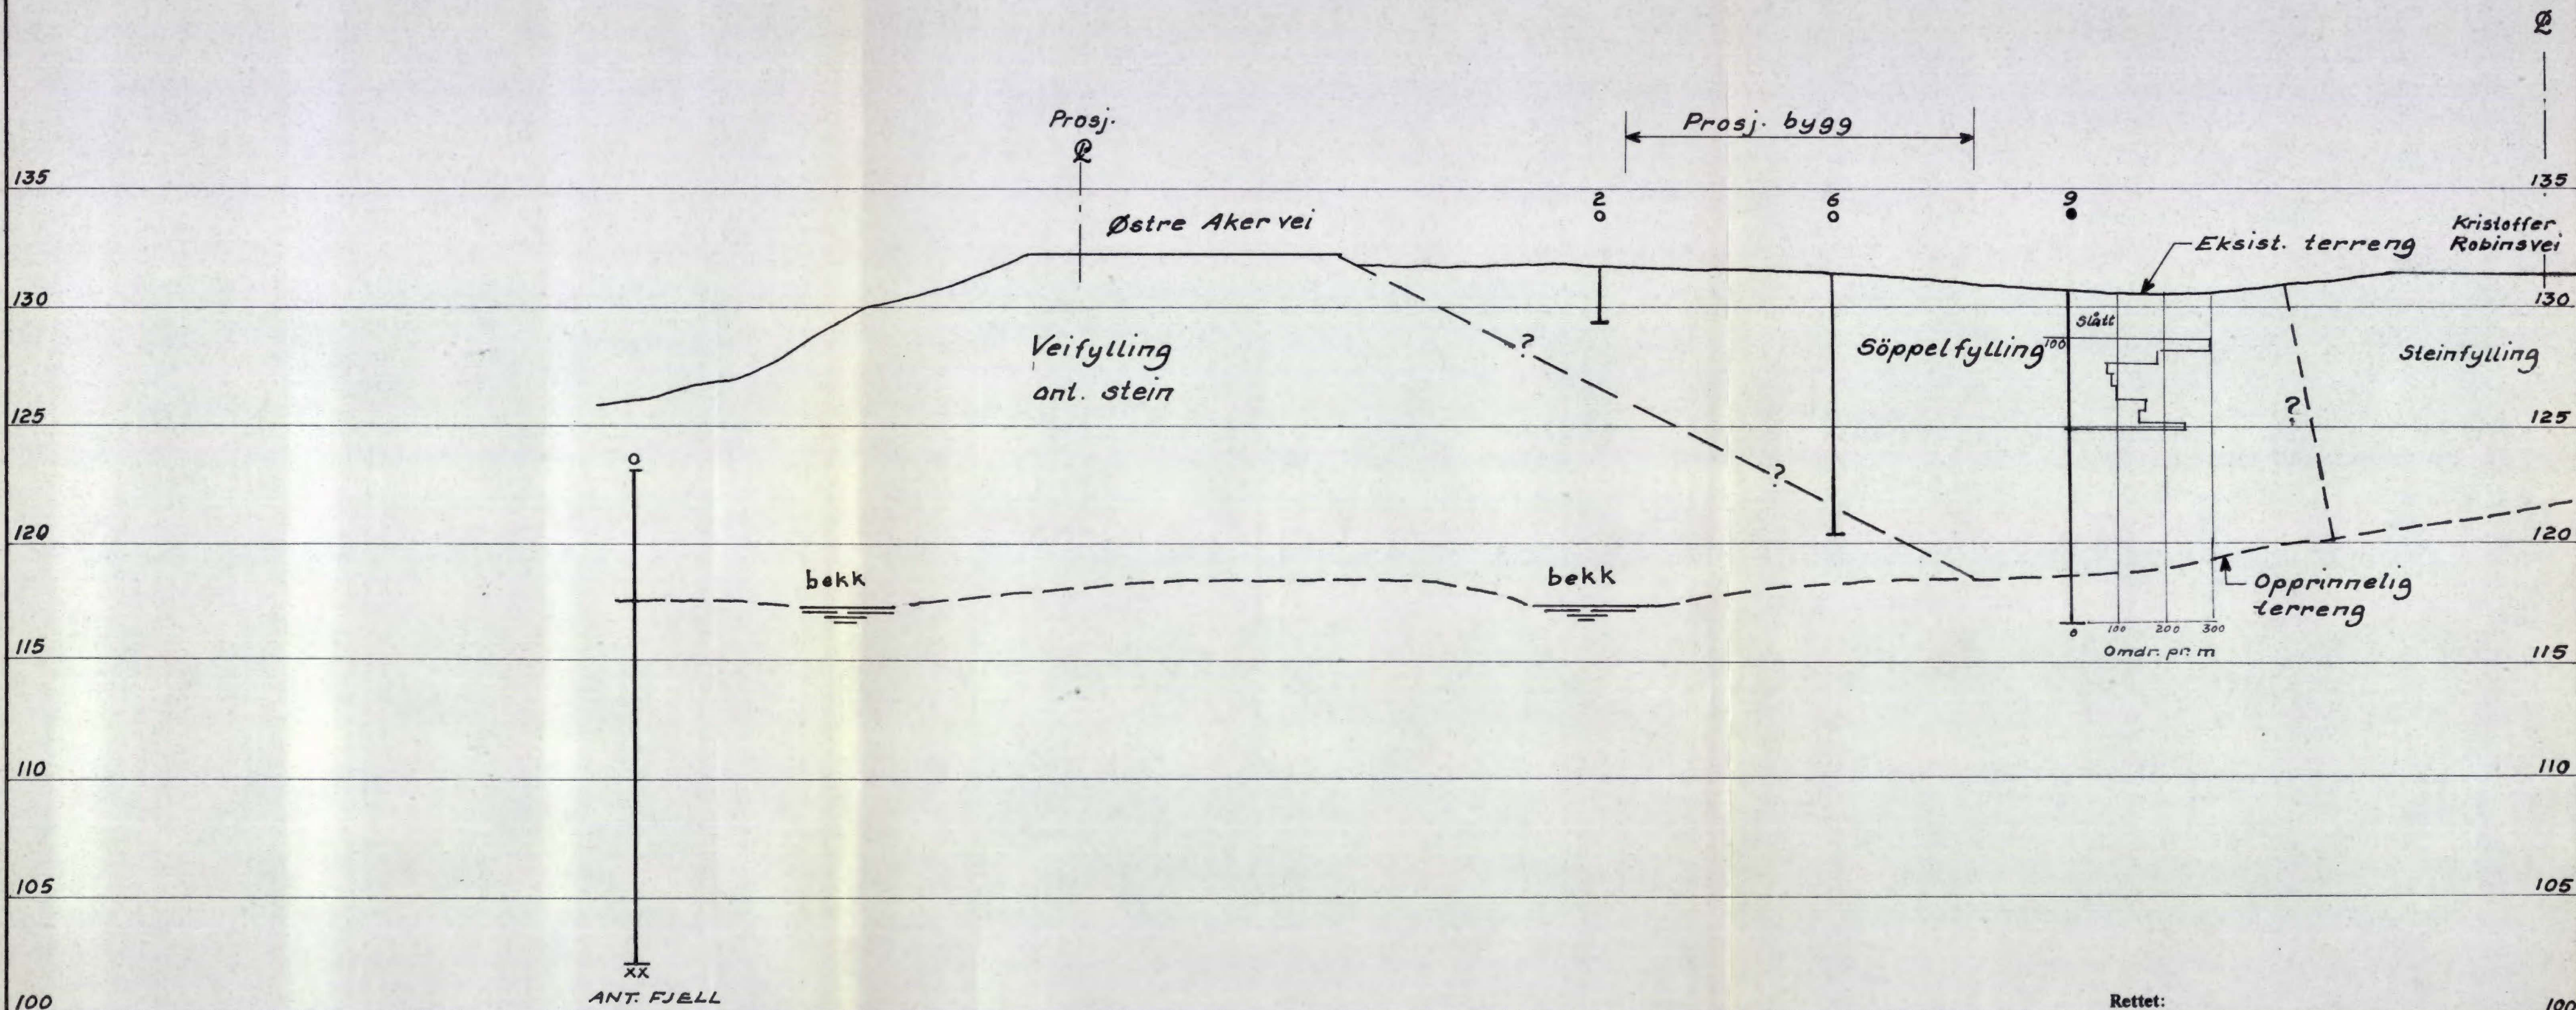 Prosj.
Prosj. bygg
135
135
2
6
9
Østre Aker vei
Eksist. terreng
Kristoffer
Robinsvei
130
130
Slått
100
Veifylling
ant. stein
?
Söppelfylling
Steinfylling
?
125
125
?
120
120
bekk
bekk
Opprinnelig
terreng
100 200 300
Omdr. pr. m
115
115
110
110
105
105
xx
ANT. FJELL
100
100
Rettet: